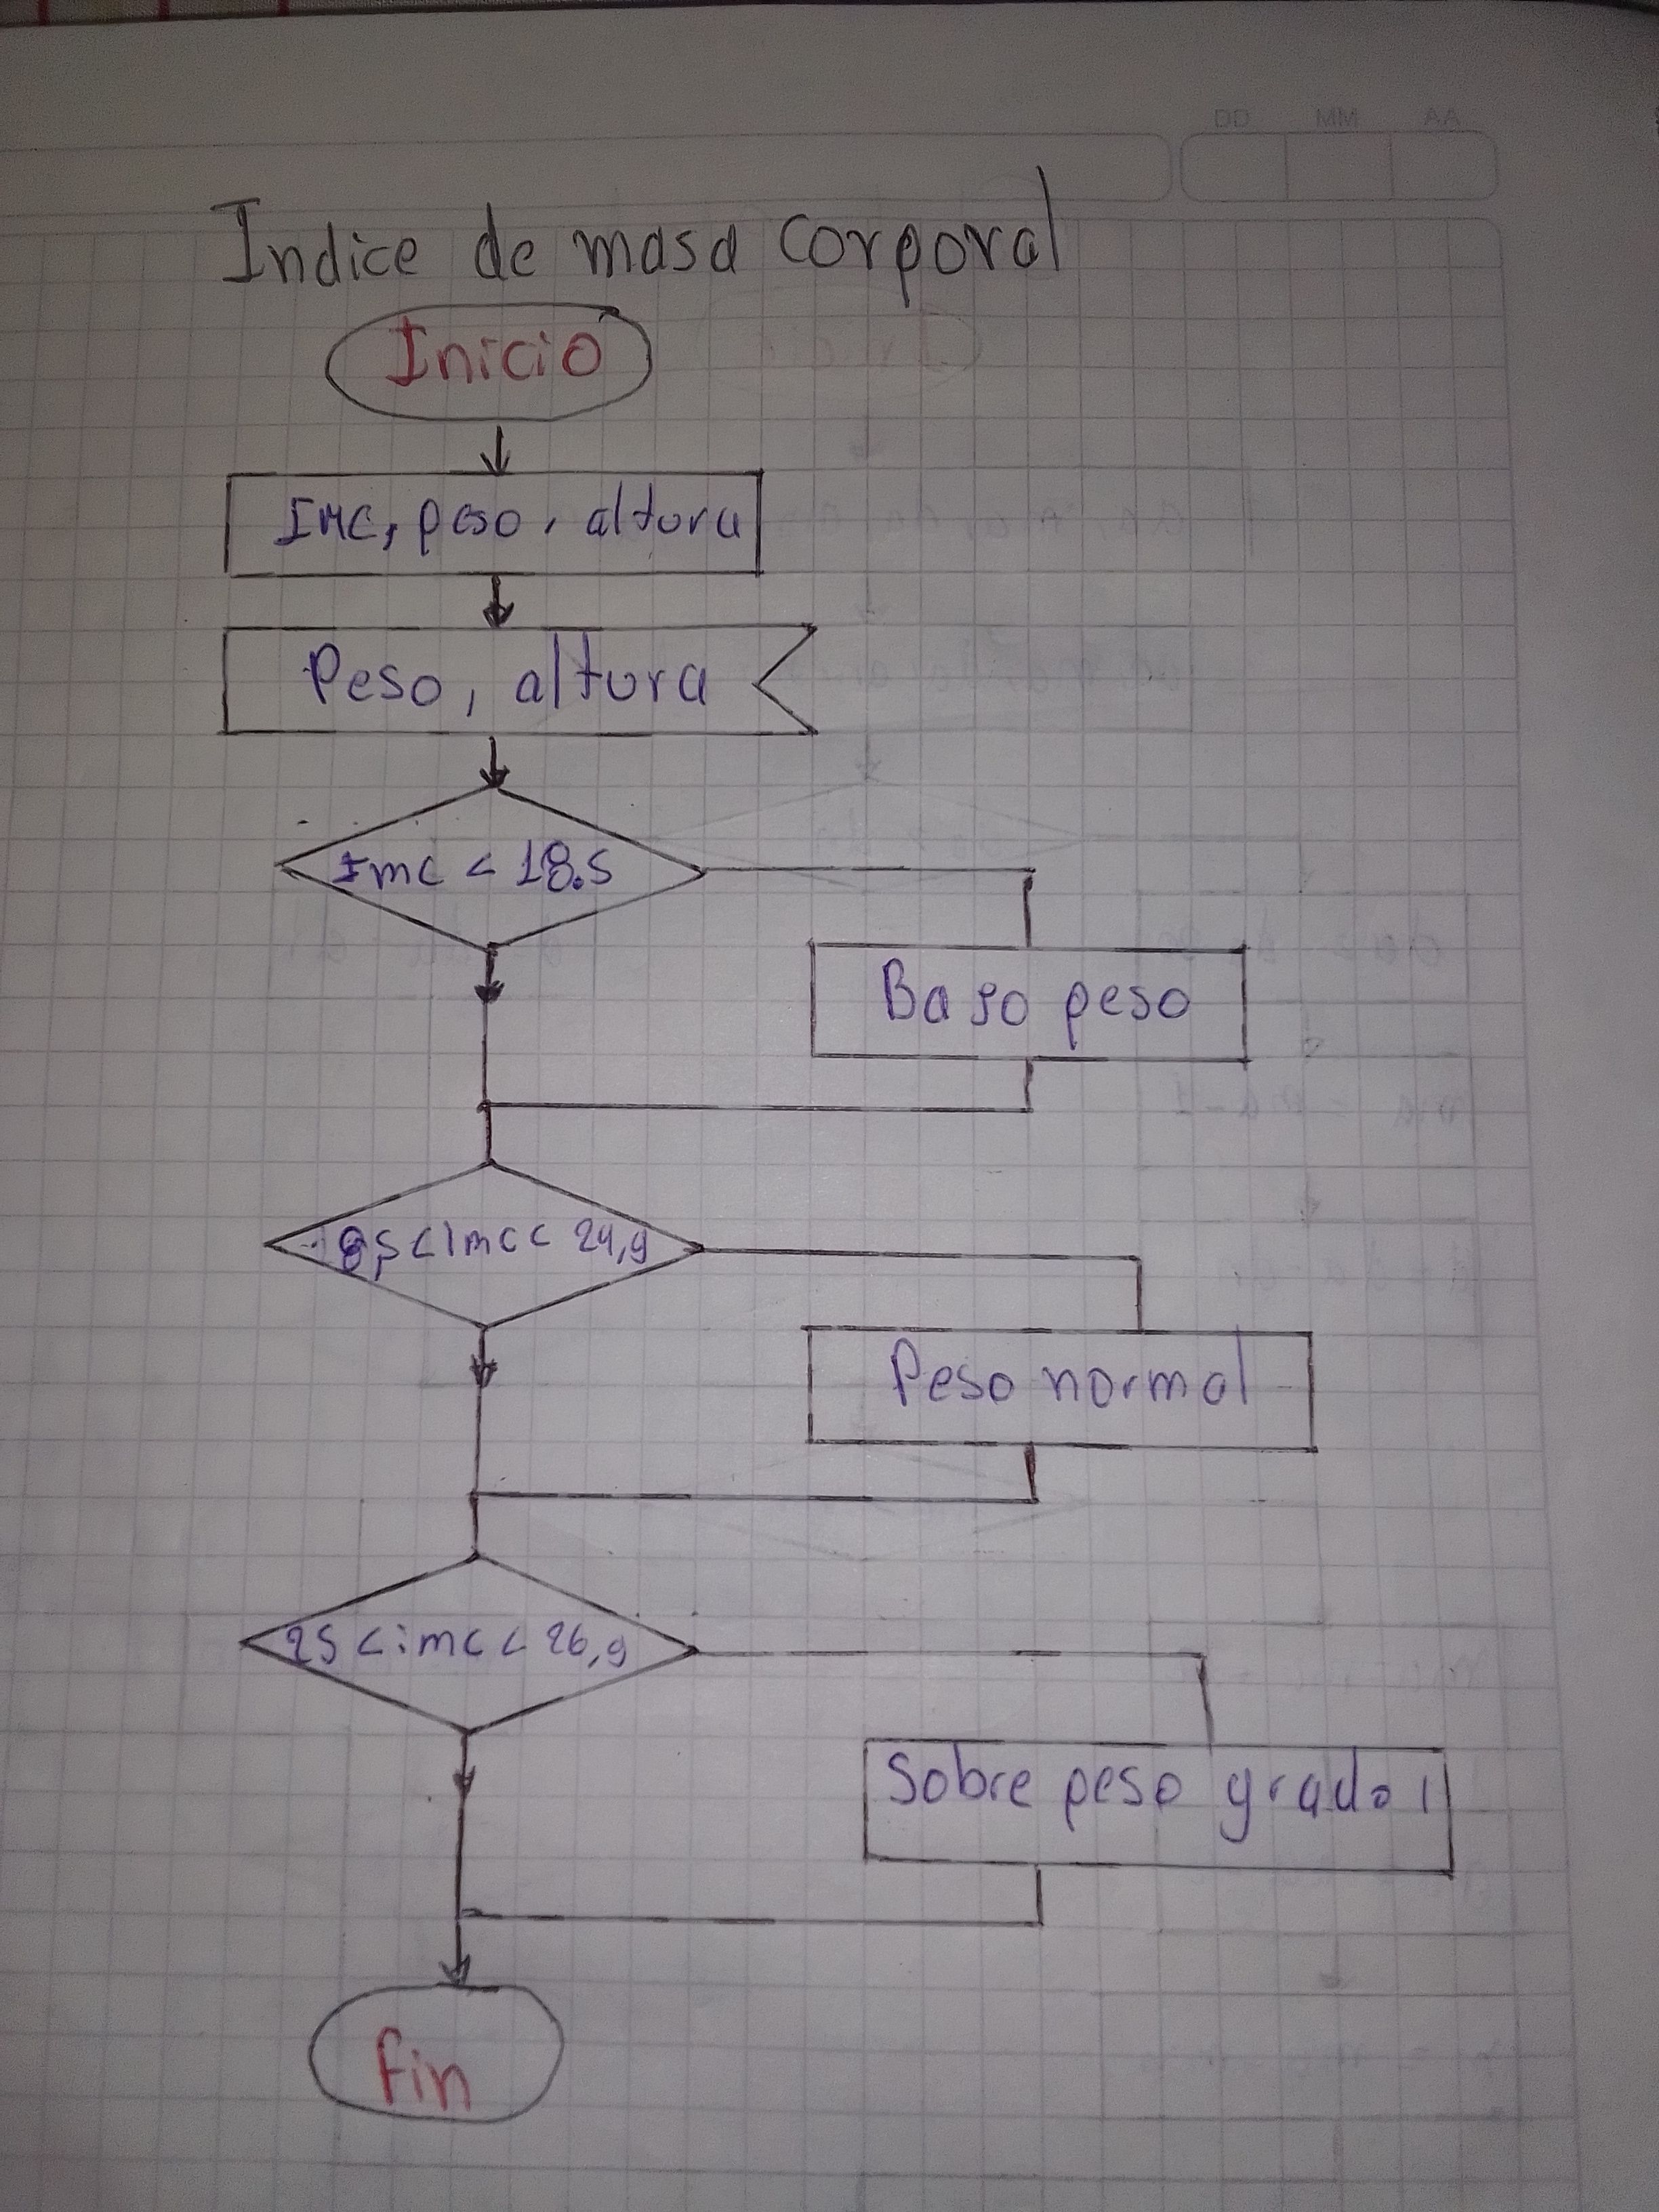 DD MM AA
Indice de masa corporal
Inicio
Imc, peso, altura
Peso, altura
Imc < 18.5
Bajo peso
8,5 < Imc < 24,9
Peso normal
25 < imc < 26,9
Sobre peso grado 1
fin